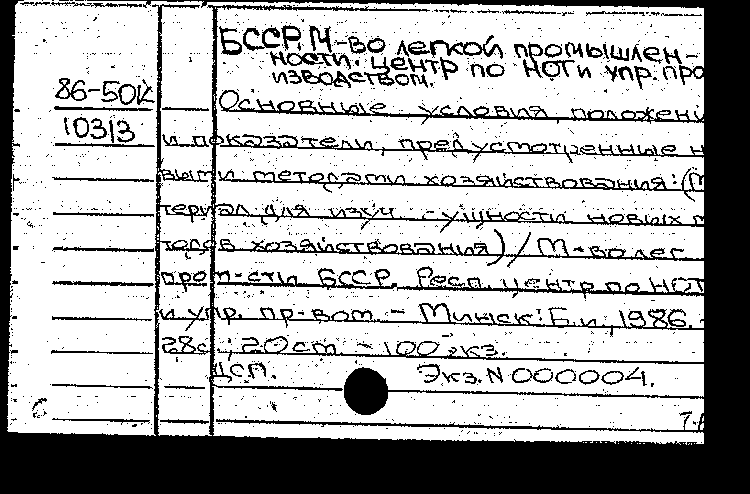 БССР. М-во легкой промышлен-
ности. Центр по НОТ и упр. про
изводством.
86-50К
Основные условия, положени
10313
и показатели, предусмотренные н
выми методами хозяйствования: (М
териал для изуч. сущности новых м
тодов хозяйствования) / М-во лег.
пром-сти БССР. Респ. центр по НОТ
и упр. пр-вом. - Минск: Б.и., 1986. -
28с.; 20см. - 100 экз.
ЦСП. Экз. N 000004.